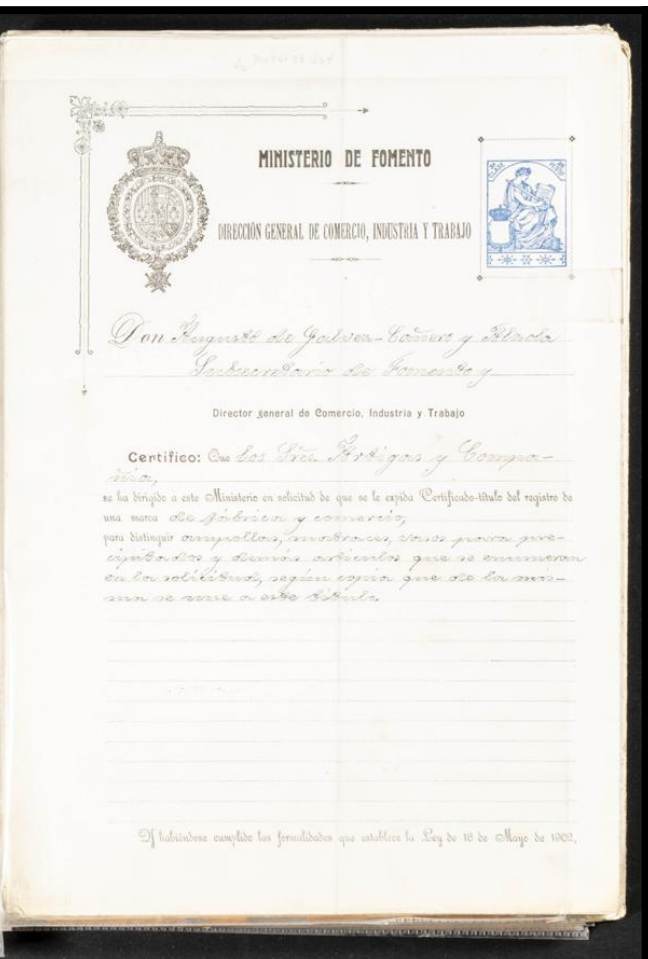 MINISTERIO DE FOMENTO
DIRECCIÓN GENERAL DE COMERCIO, INDUSTRIA Y TRABAJO
Don Augusto de Galvez-Cañero y Alzola
Subsecretario de Fomento y
Director general de Comercio, Industria y Trabajo
Certifico: Que los Sres Artigas y Compa-
ñia,
se ha dirigido a este Ministerio en solicitud de que se le expida Certificado-título del registro de
una marca de fábrica y comercio,
para distinguir ampollas, matraces, vasos para pre-
cipitados y demás artículos que se enumeran
en la solicitud, según copia que de la mis-
ma se une a este título.
Y habiéndose cumplido las formalidades que establece la Ley de 16 de Mayo de 1902,